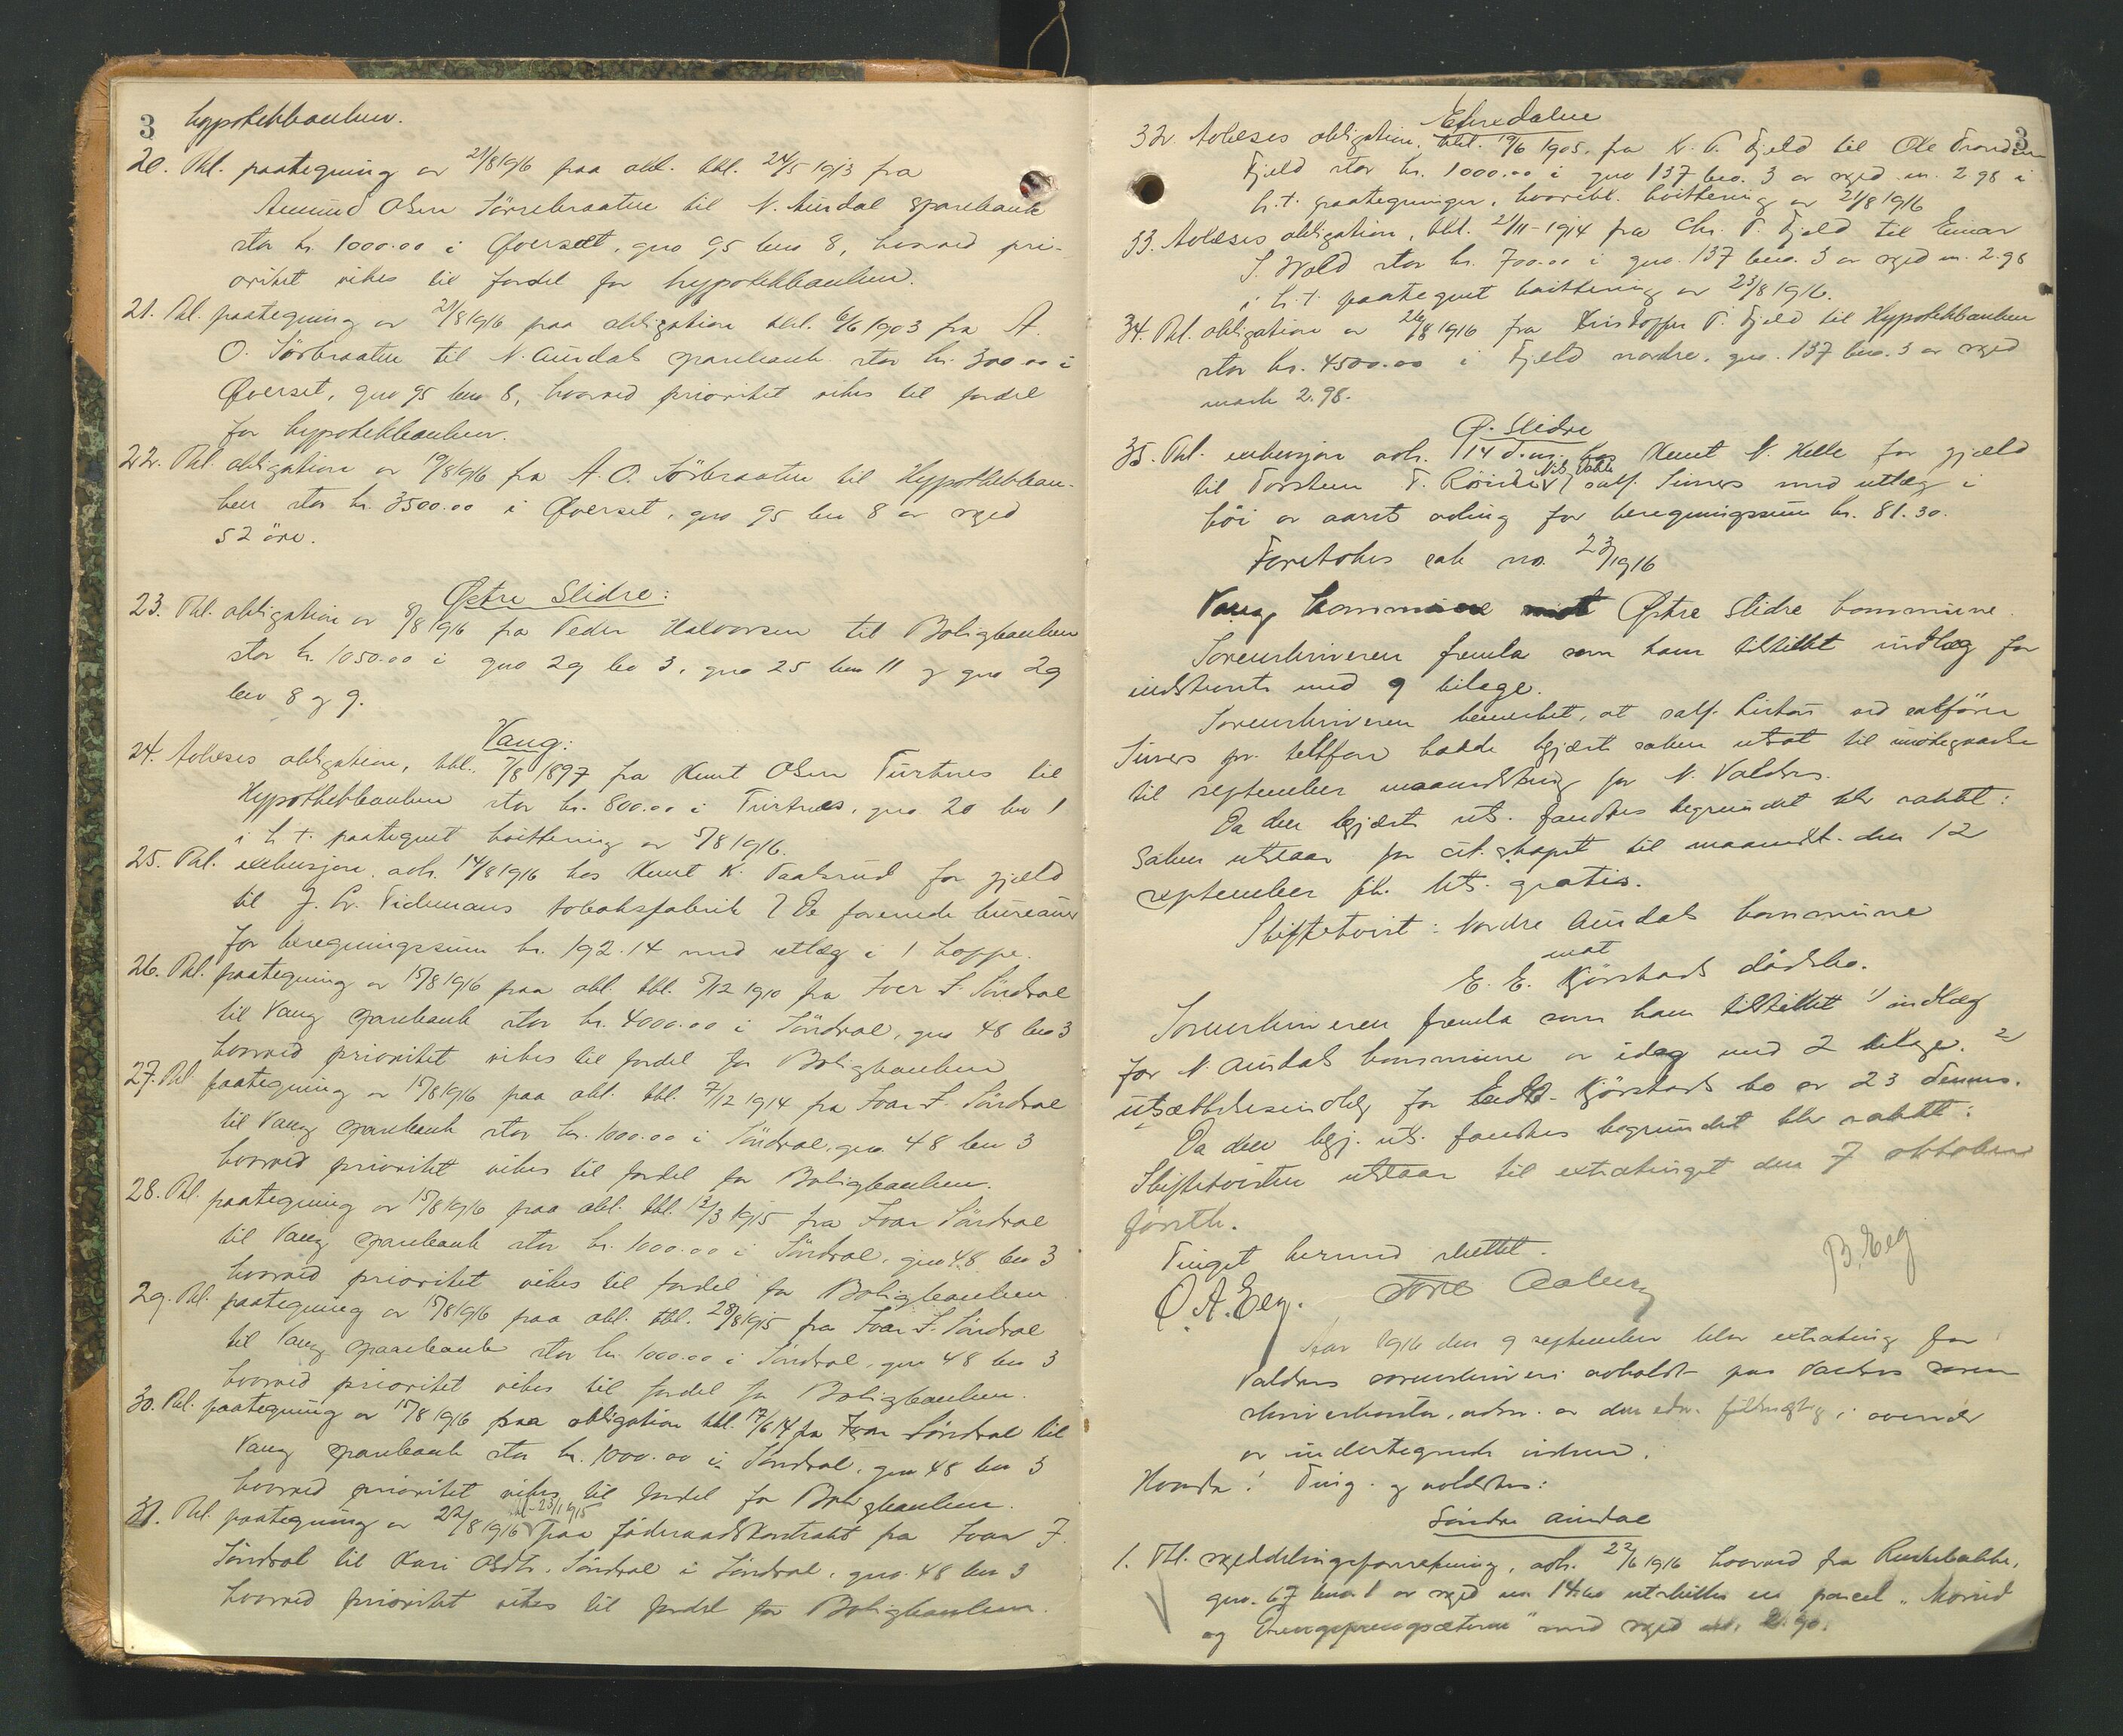 3 hypotekbanken.
20. Thl. paategning av 21/8 1916 paa obl. tbl. 24/5 1913 fra
Amund Olsen Sørrebraaten til N. Aurdal sparebank
stor kr. 1000.00 i Øverset, gno 95 bno 8, hvorved pri-
oritet vikes til fordel for hypotekbanken.
21. Thl. paategning av 21/8 1916 paa obligation tbl. 6/6 1903 fra A.
O. Sørbraaten til N. Aurdals sparebank stor kr. 300.00 i
Øverset, gno 95 bno 8, hvorved prioritet vikes til fordel
for hypotekbanken.
22. Thl. obligation av 19/8 1916 fra A. O. Sörbraaten til Hypothekban-
ken stor kr. 3500.00 i Øverset, gno 95 bno 8 av skyld
52 øre.
Østre Slidre:
23. Thl. obligation av 8/8 1916 fra Peder Halvorsen til Boligbanken
stor kr. 1050.00 i gno 29 bno 3, gno 25 bno 11 og gno 29
bno 8 og 9.
Vang:
24. Avlæses obligation, tbl. 7/8 1897 fra Knut Olsen Turtnes til
Hypothekbanken stor kr. 800.00 i Turtnes, gno 20 bno 1
i h. t. paategnet kvittering av 5/8 1916.
25. Thl. exekusjon avh. 14/8 1916 hos Knut K. for gjæld
til J. L. Tidemans tobaksfabrik v/ De forenede bureauer
for beregningssum kr. 192.14 med utlæg i 1 hoppe.
26. Thl. paategning av 15/8 1916 paa obl. tbl. 5/12 1910 fra Iver I. Söndrol
til Vang sparebank stor kr. 4000.00 i Söndrol, gno 48 bno 3
hvorved prioritet vikes til fordel for Boligbanken
27. Thl. paategning av 15/8 1916 paa obl. tbl. 7/12 1914 fra Ivar I. Söndrol
til Vang sparebank stor kr. 1000.00 i Söndrol, gno. 48 bno 3
hvorved prioritet vikes til fordel for Boligbanken.
28. Thl. paategning av 15/8 1916 paa obl. tbl. 12/3 1915 fra Ivar Söndrol
til Vang sparebank stor kr. 1000.00 i Söndrol, gno 48 bno 3
hvorved prioritet vikes til fordel for Boligbanken
29. Thl. paategning av 15/8 1916 paa obl. tbl. 28/8 1915 fra Ivar I. Söndrol
til Vang sparebank stor kr. 1000.00 i Söndrol, gno 48 bno 3
hvorved prioritet vikes til fordel for Boligbanken.
30. Thl. paategning av 15/8 1916 paa obligation tbl. 17/6 14 fra Ivar Söndrol til
Vang sparebank stor kr. 1000.00 i Söndrol, gno 48 bno 3
hvorved prioritet vikes til fordel for Boligbanken.
tbl. 23/1 1915
31. Thl. paategning av 22/8 1916 paa föderaadskontrakt fra Ivar I.
Söndrol til Kari Olsdtr. Söndrol i Söndrol, gno. 48 bno 3
hvorved prioritet vikes til fordel for Boligbanken.
3
Etnedalen
32. Avlæses obligation, tbl. 19/6 1905, fra K. T. Fjeld til Ole Trondsen
Fjeld stor kr. 1000.00 i gno 137 bno. 3 av skyld m. 2.98 i
h. t. paategninger, hvoriblt. kvittering av 21/8 1916
33. Avlæses obligation, tbl. 2/11-1914 fra Chr. T. Fjeld til Einar
I. Wold stor kr. 700.00 i gno. 137 bno. 3 av skyld m. 2.98
i h. t. paategnet kvittering av 23/8 1916.
34. Thl. obligation av 26/8 1916 fra Kristoffer T. Fjeld til Hypotekbanken
stor kr. 4500.00 i Fjeld nordre, gno. 137 bno. 3 av skyld
mark 2.98.
Ø. Slidre
35. Thl. exekusjon avh. 14 d.m. hos Knut N. Helle for gjæld
til Torstein T. v/ sakf. Siness med utlæg i
höi av aarets avling for beregningssum kr. 81.30.
Foretokes sak no. 23/1916
Vang kommune mot Østre Slidre kommune
Sorenskriveren fremla som ham tilstillet indlæg for
indstevnte med 9 bilage.
Sorenskriveren bemerket, at sakf. ved sakfører
Siness pr. telefon hadde begjært saken utsat til imøtegaaelse
til september maanedsting for N. Valdres.
Da den begjærte uts. fandtes begrundet blev avsagt:
Saken utstaar for cit. skapet til maanedst. den 12
september fk. Uts. gratis.
Skiftetvist: Nordre Aurdals kommune
mot
E. E. Kjørstads dødsbo.
Sorenskriveren fremla som ham tilstillet 1) indlæg
for N. Aurdals kommune av idag med 2 bilage. 2)
utsættelsesindlæg for Kjørstads bo av 23 dennes.
Da den begj. uts. fandtes begrundet blev avsagt:
Skiftetvisten utstaar til extratinget den 7 oktober
førstk.
Tinget hermed sluttet.
O. A. Eeg. Tore Aaberg
B. Eeg
Aar 1916 den 9 september blev extrating for
Valdres sorenskriveri avholdt paa Valdres soren-
skriverkontor, adm. av den edsv. fuldmægtig i overvær
av undertegnede vidner.
Hvorda: Ting- og avlæstes:
Søndre Aurdal
1. Thl. skylddelingsforretning, avh. 22/6 1916 hvorved fra Ruskebakke,
gno. 67 bno 1 av skyld m 14.60 utskiltes en parcel "
og " med skyld m. 2.90.